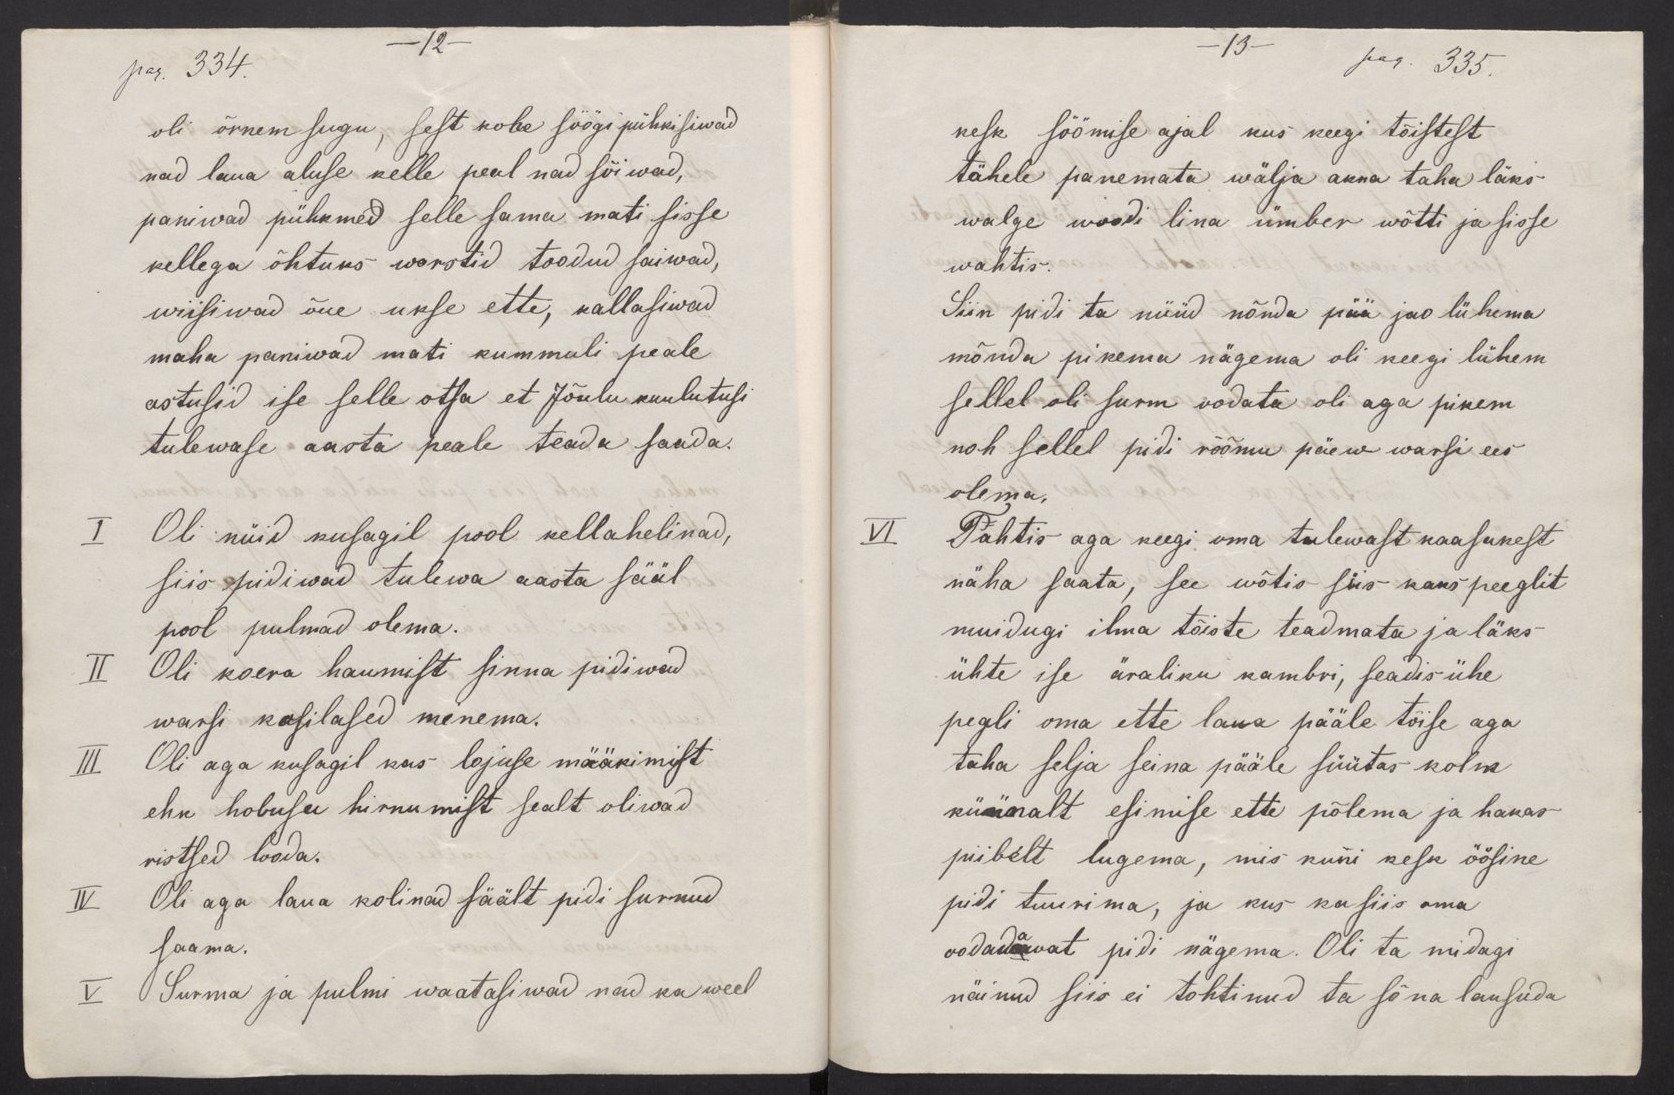 pag. 334.
—12—
oli õrnem sugu, sest kohe söögi pühkisiwad
nad laua aluse kelle peal nad sõiwad,
paniwad pühkmed selle sama mati sisse
kellega õhtuks worstid toodud saiwad,
wiisiwad õue ukse ette, kallasiwad
maha paniwad mati kummuli peale
astusid ise selle otsa et Jõulu kuulutusi
tulewase aasta peale teada saada.
I Oli nüid kusagil pool kellahelinad,
siis pidiwad tulewa aasta sääl
pool pulmad olema.
II Oli koera haumist sinna pidiwad
warsi kosilased menema.
III Oli aga kusagil kas lojuse määkimist
ehk hobuse hirnumist sealt oliwad
ristsed looda.
IV Oli aga laua kolinad säält pidi surnud
saama.
V Surma ja pulmi waatasiwad nad ka weel
—13—
pag. 335.
kesk söömise ajal kus keegi tõistest
tähele panemata wälja akna taha läks
walge woodi lina ümber wõtti ja sisse
wahtis.
Siin pidi ta nüüd nõnda pää jao lühema
mõnda pikema nägema oli keegi lühem
sellel oli surm oodata oli aga pikem
noh sellel pidi rõõmu päew warsi ees
olema.
VI Tahtis aga keegi oma tulewast kaasukest
näha saata, see wõtis siis kaks peeglit
muidugi ilma tõiste teadmata ja läks
ühte ise äraliku kambri, seadis ühe
pegli oma ette laua pääle tõise aga
taha selja seina pääle süütas kolm
küünalt esimise ette põlema ja hakas
piibelt lugema, mis kuni kesk öösine
pidi tuurima, ja kus ka siis oma
oodadawat pidi nägema. Oli ta midagi
näinud siis ei tohtinud ta sõna lausuda